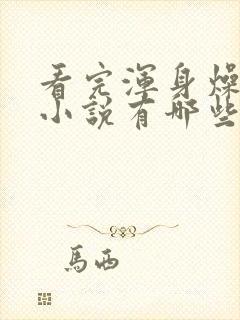 看完渾身燥
小說有哪些
馬西